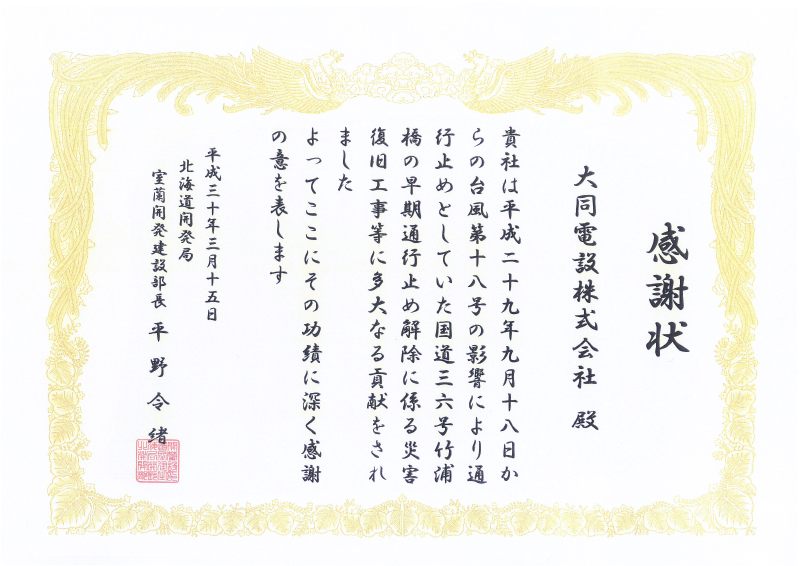 感謝状
大同電設株式会社 殿
貴社は平成二十九年九月十八日か
らの台風第十八号の影響により通
行止めとしていた国道三六号竹浦
橋の早期通行止め解除に係る災害
復旧工事等に多大なる貢献をされ
ました
よってここにその功績に深く感謝
の意を表します
平成三十年三月十五日
北海道開発局
室蘭開発建設部長 平野令緒